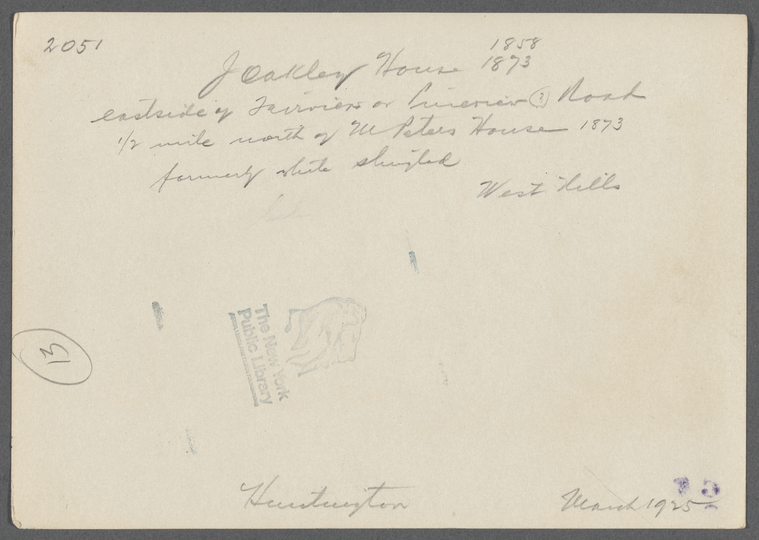 2051
J Oakley House 1858
1873
eastside of Fairview or Pineview (?) Road
1/2 mile north of M Peters House 1873
formerly white shingled
West Hills
13
The New York
Public Library
Huntington
March 1925